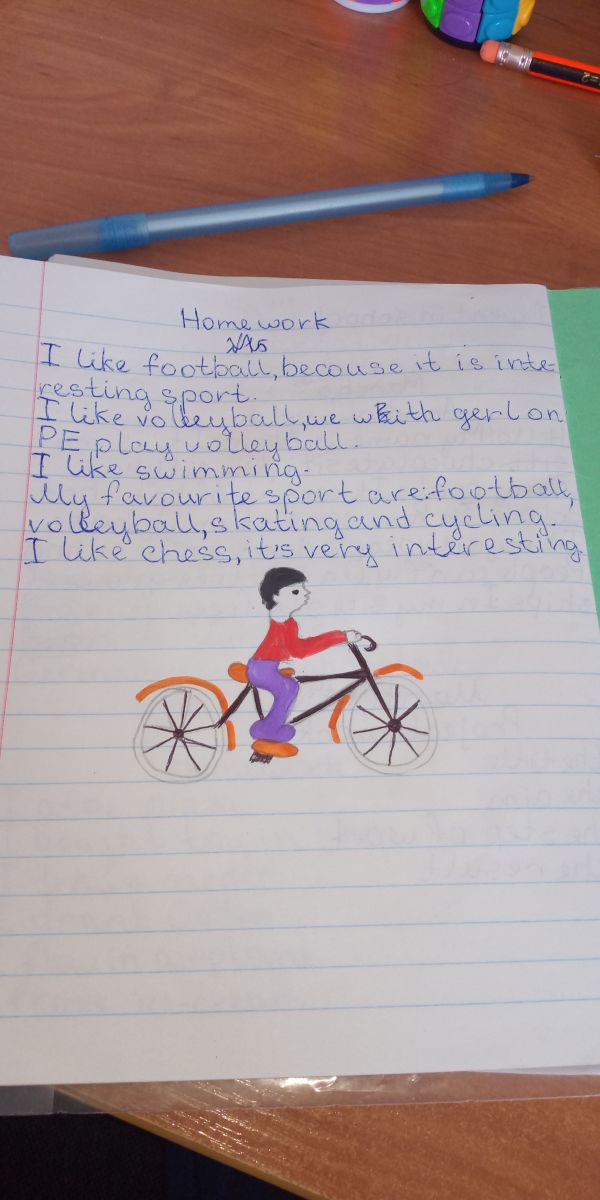 Homework
I like football, becouse it is inte-
resting sport.
I like volleyball, we with gerl on
PE play volleyball.
I like swimming.
My favourite sport are: football,
volleyball, skating and cycling.
I like chess, it's very interesting.